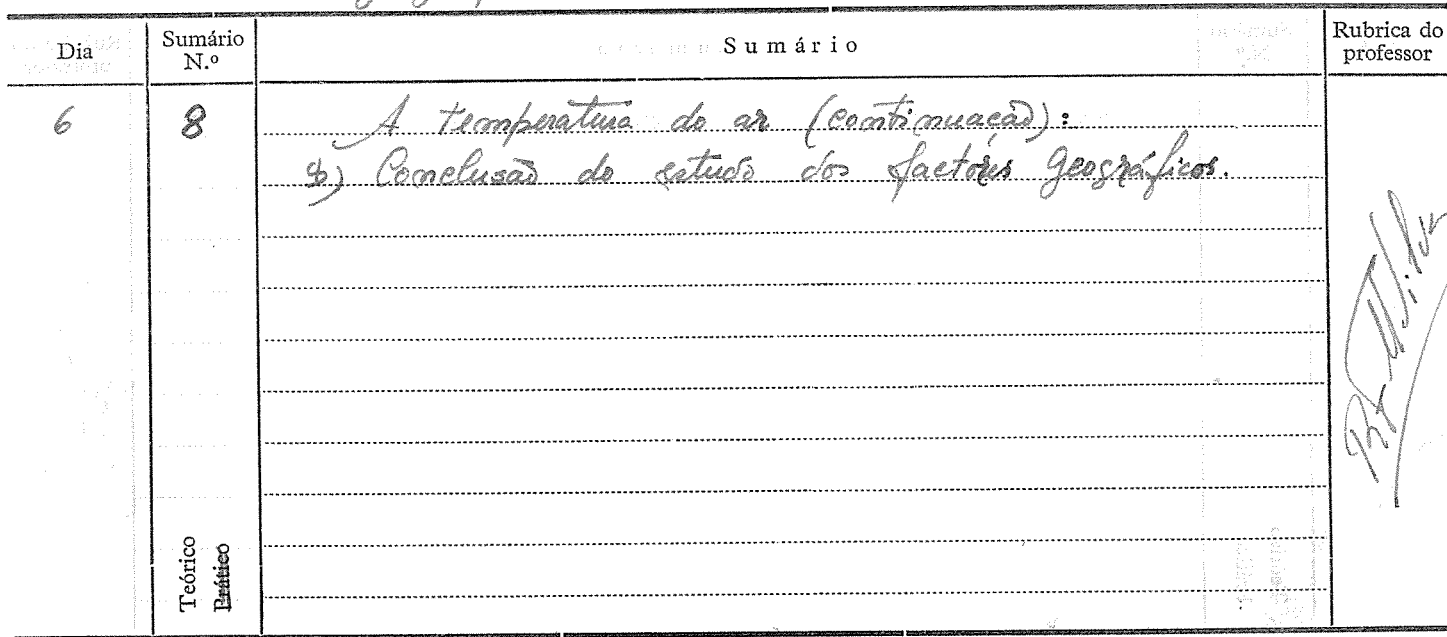 Dia
Sumário N.º
Sumário
Rubrica do professor
6
8
A temperatura do ar (continuação):
b) Conclusão do estudo dos factores geográficos.
Teórico
Prático